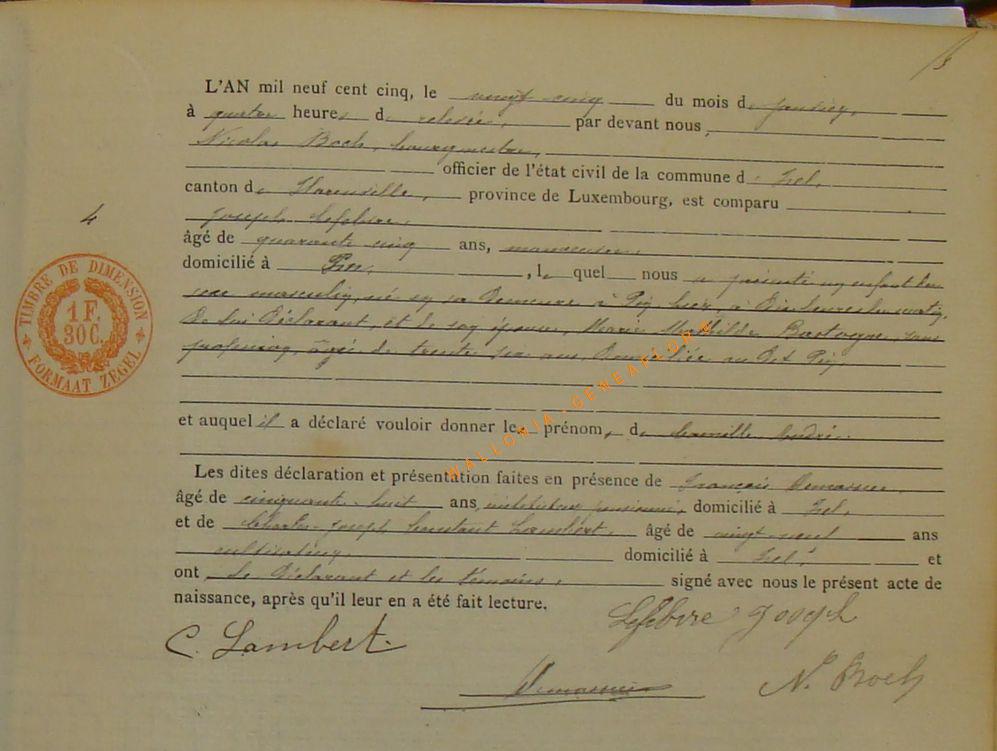 L'AN mil neuf cent cinq, le vingt-cinq du mois de janvier,
à quatre heures de relevée, par devant nous,
Nicolas Roch, bourgmestre,
officier de l'état civil de la commune d' Izel,
canton de Florenville, province de Luxembourg, est comparu
Joseph Lefebvre,
4
âgé de quarante cinq ans, manoeuvre,
domicilié à Pin, , le quel nous a présenté un enfant du
sexe masculin, né en sa demeure à Pin, hier, à dix heures du matin,
de lui déclarant, et de son épouse, Marie Mathilde Bastogne, sans
profession, âgée de trente six ans, domiciliée au dit Pin,
TIMBRE DE DIMENSION
1 F.
30 C.
FORMAAT ZEGEL
et auquel il a déclaré vouloir donner les prénoms de Camille André.
Les dites déclaration et présentation faites en présence de François
âgé de cinquante-huit ans, instituteur pensionné, domicilié à Izel,
et de Charles Joseph Constant Lambert, âgé de vingt-neuf ans
cultivateur, domicilié à Izel, et
ont le déclarant et les témoins, signé avec nous le présent acte de
naissance, après qu'il leur en a été fait lecture.
Lefebvre Joseph
C. Lambert.
N. Roch
WALLONIA-GENEAFLORA